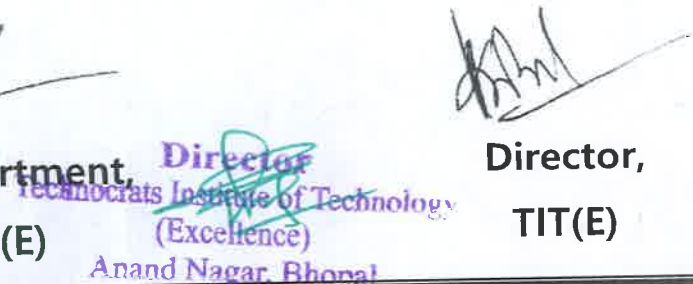 rtment,
(E)
Director
Technocrats Institute of Technology
(Excellence)
Anand Nagar, Bhopal
Director,
TIT(E)